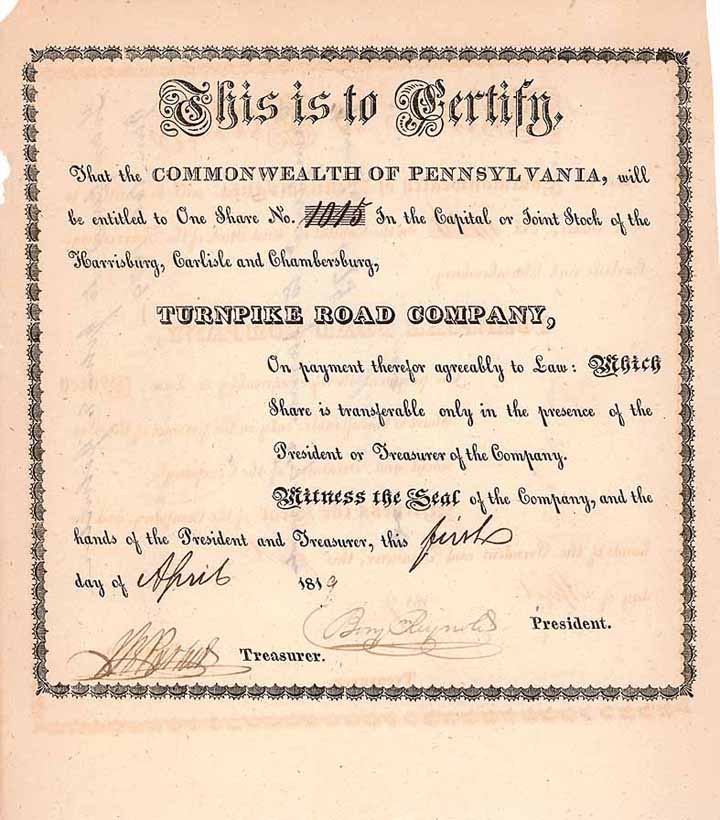 This is to Certify,
That the COMMONWEALTH OF PENNSYLVANIA, will
be entitled to One Share No. 1015 In the Capital or Joint Stock of the
Harrisburg, Carlisle and Chambersburg,
TURNPIKE ROAD COMPANY,
On payment therefor agreeably to Law: Which
Share is transferable only in the presence of the
President or Treasurer of the Company.
Witness the Seal of the Company, and the
hands of the President and Treasurer, this first
day of April 1819
Reynolds President.
Treasurer.